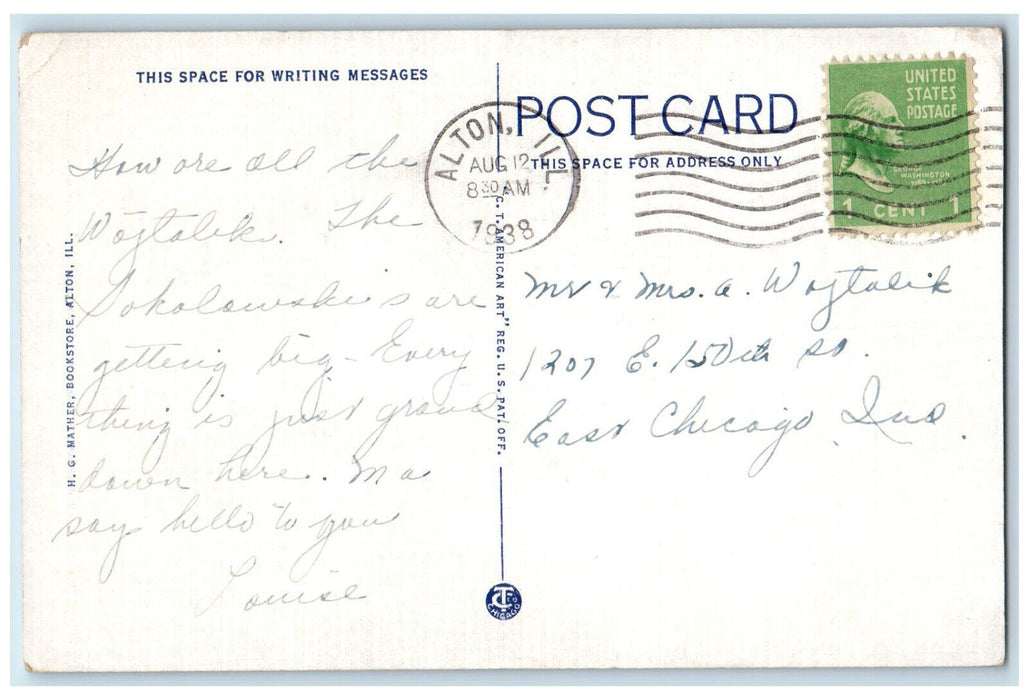 THIS SPACE FOR WRITING MESSAGES
How are all the
Wojtalik. The
Sokolowski's are
getting big - Every
thing is just grand
down here. Ma
say hello to you
Louise
H. G. MATHER, BOOKSTORE, ALTON, ILL.
C. T. AMERICAN ART" REG. U. S. PAT. OFF.
CHICAGO
POST CARD
THIS SPACE FOR ADDRESS ONLY
ALTON, ILL.
AUG 12
8 30 AM
1938
UNITED
STATES
POSTAGE
GEORGE
WASHINGTON
1 CENT 1
Mr & Mrs. A. Wojtalik
1207 E. 150th St.
East Chicago, Ind.